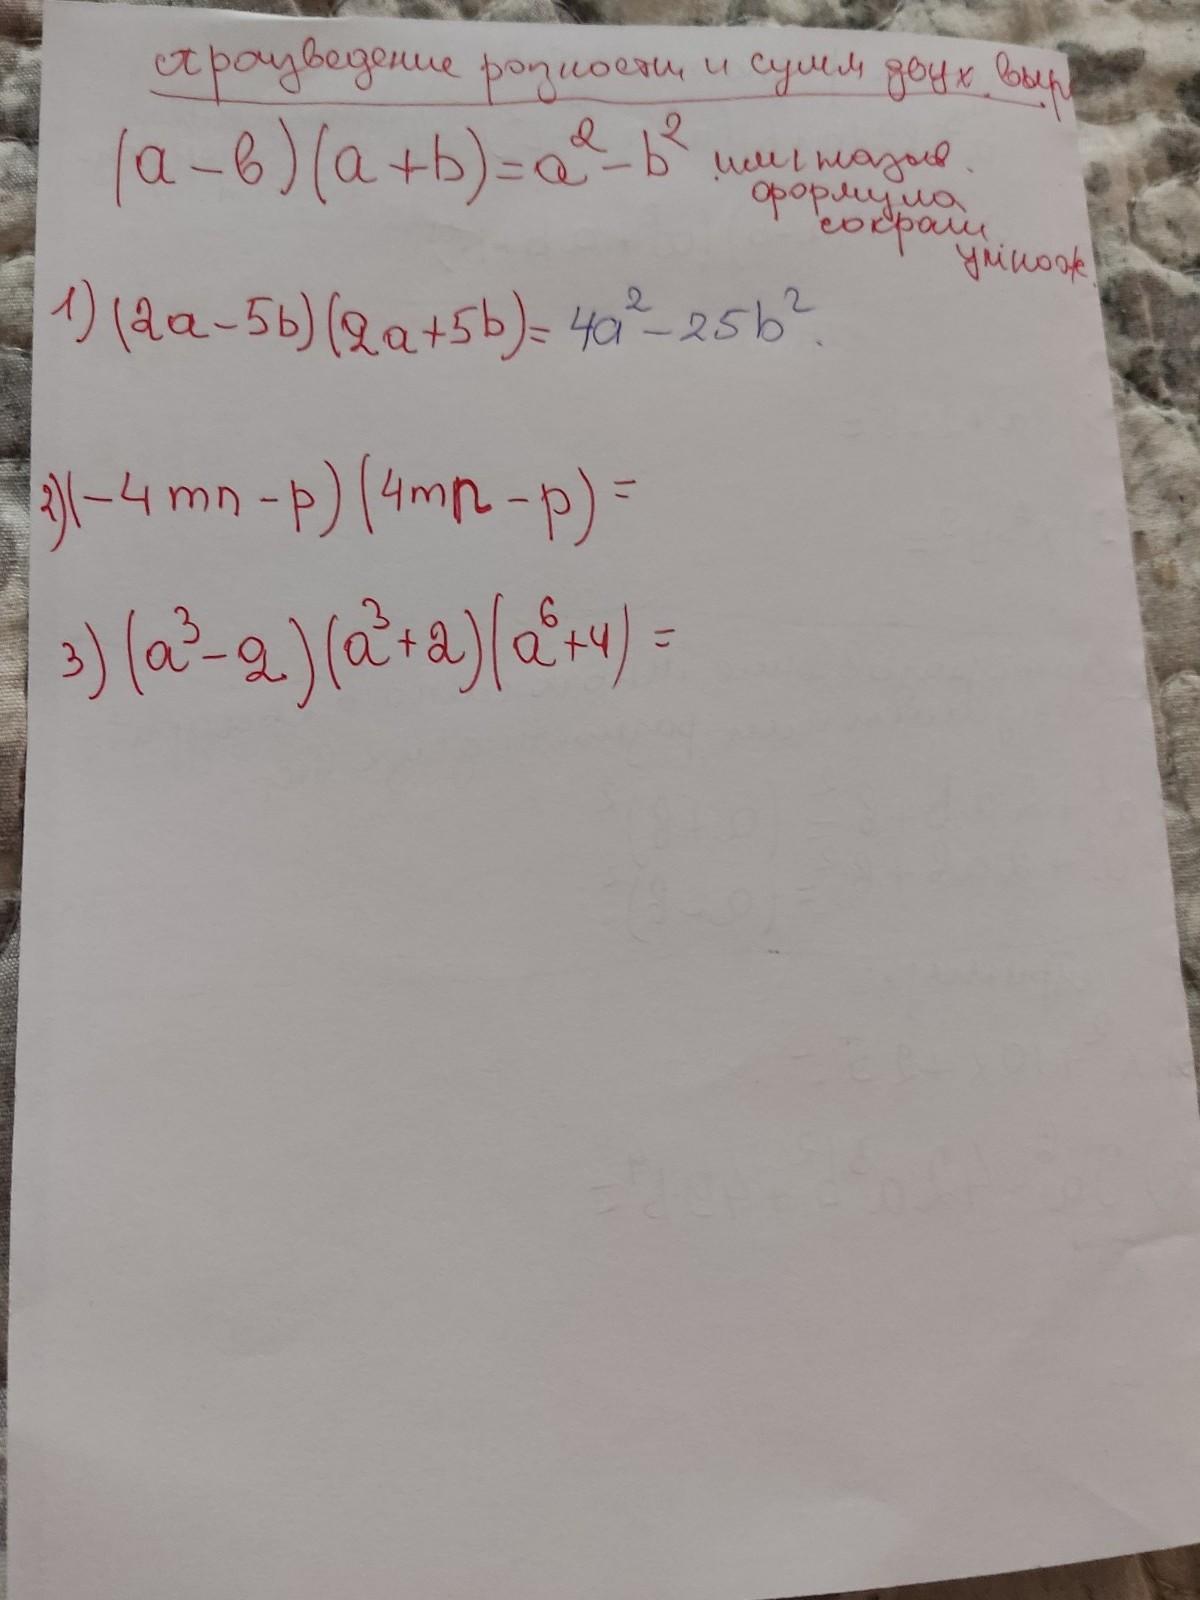 произведение разности и сумм двух выр
(a - в)(a + b) = a² - b² или назыв.
формула
сокращ
умнож.
1) (2a - 5b)(2a + 5b) = 4a² - 25b².
2) (-4mn - p)(4mn - p) =
3) (a³ - 2)(a³ + 2)(a⁶ + 4) =